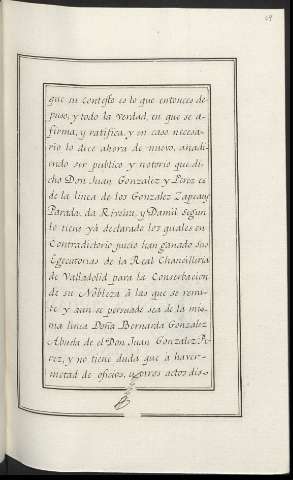 69
que su contesto es lo que entonces de-
puso, y todo la verdad, en que se a-
firma, y ratifica, y en caso necesa-
rio lo dice ahora de nuevo, añadi-
endo ser publico y notorio que di-
cho Don Juan Gonzalez y Perez es
de la linea de los Gonzalez
Parada, da Riveira, y Damil segun
lo tiene yá declarado los quales en
Contradictorio juicio han ganado sus
Egecutorias de la Real Chancilleria
de Valladolid para la Conservacion
de su Nobleza â las que se remi-
te y aun se persuade sea de la mis-
ma linea Doña Bernarda Gonzalez
Abuela de el Don Juan Gonzalez Pe-
rez, y no tiene duda que â haver
metad de oficios, u otros actos dis-